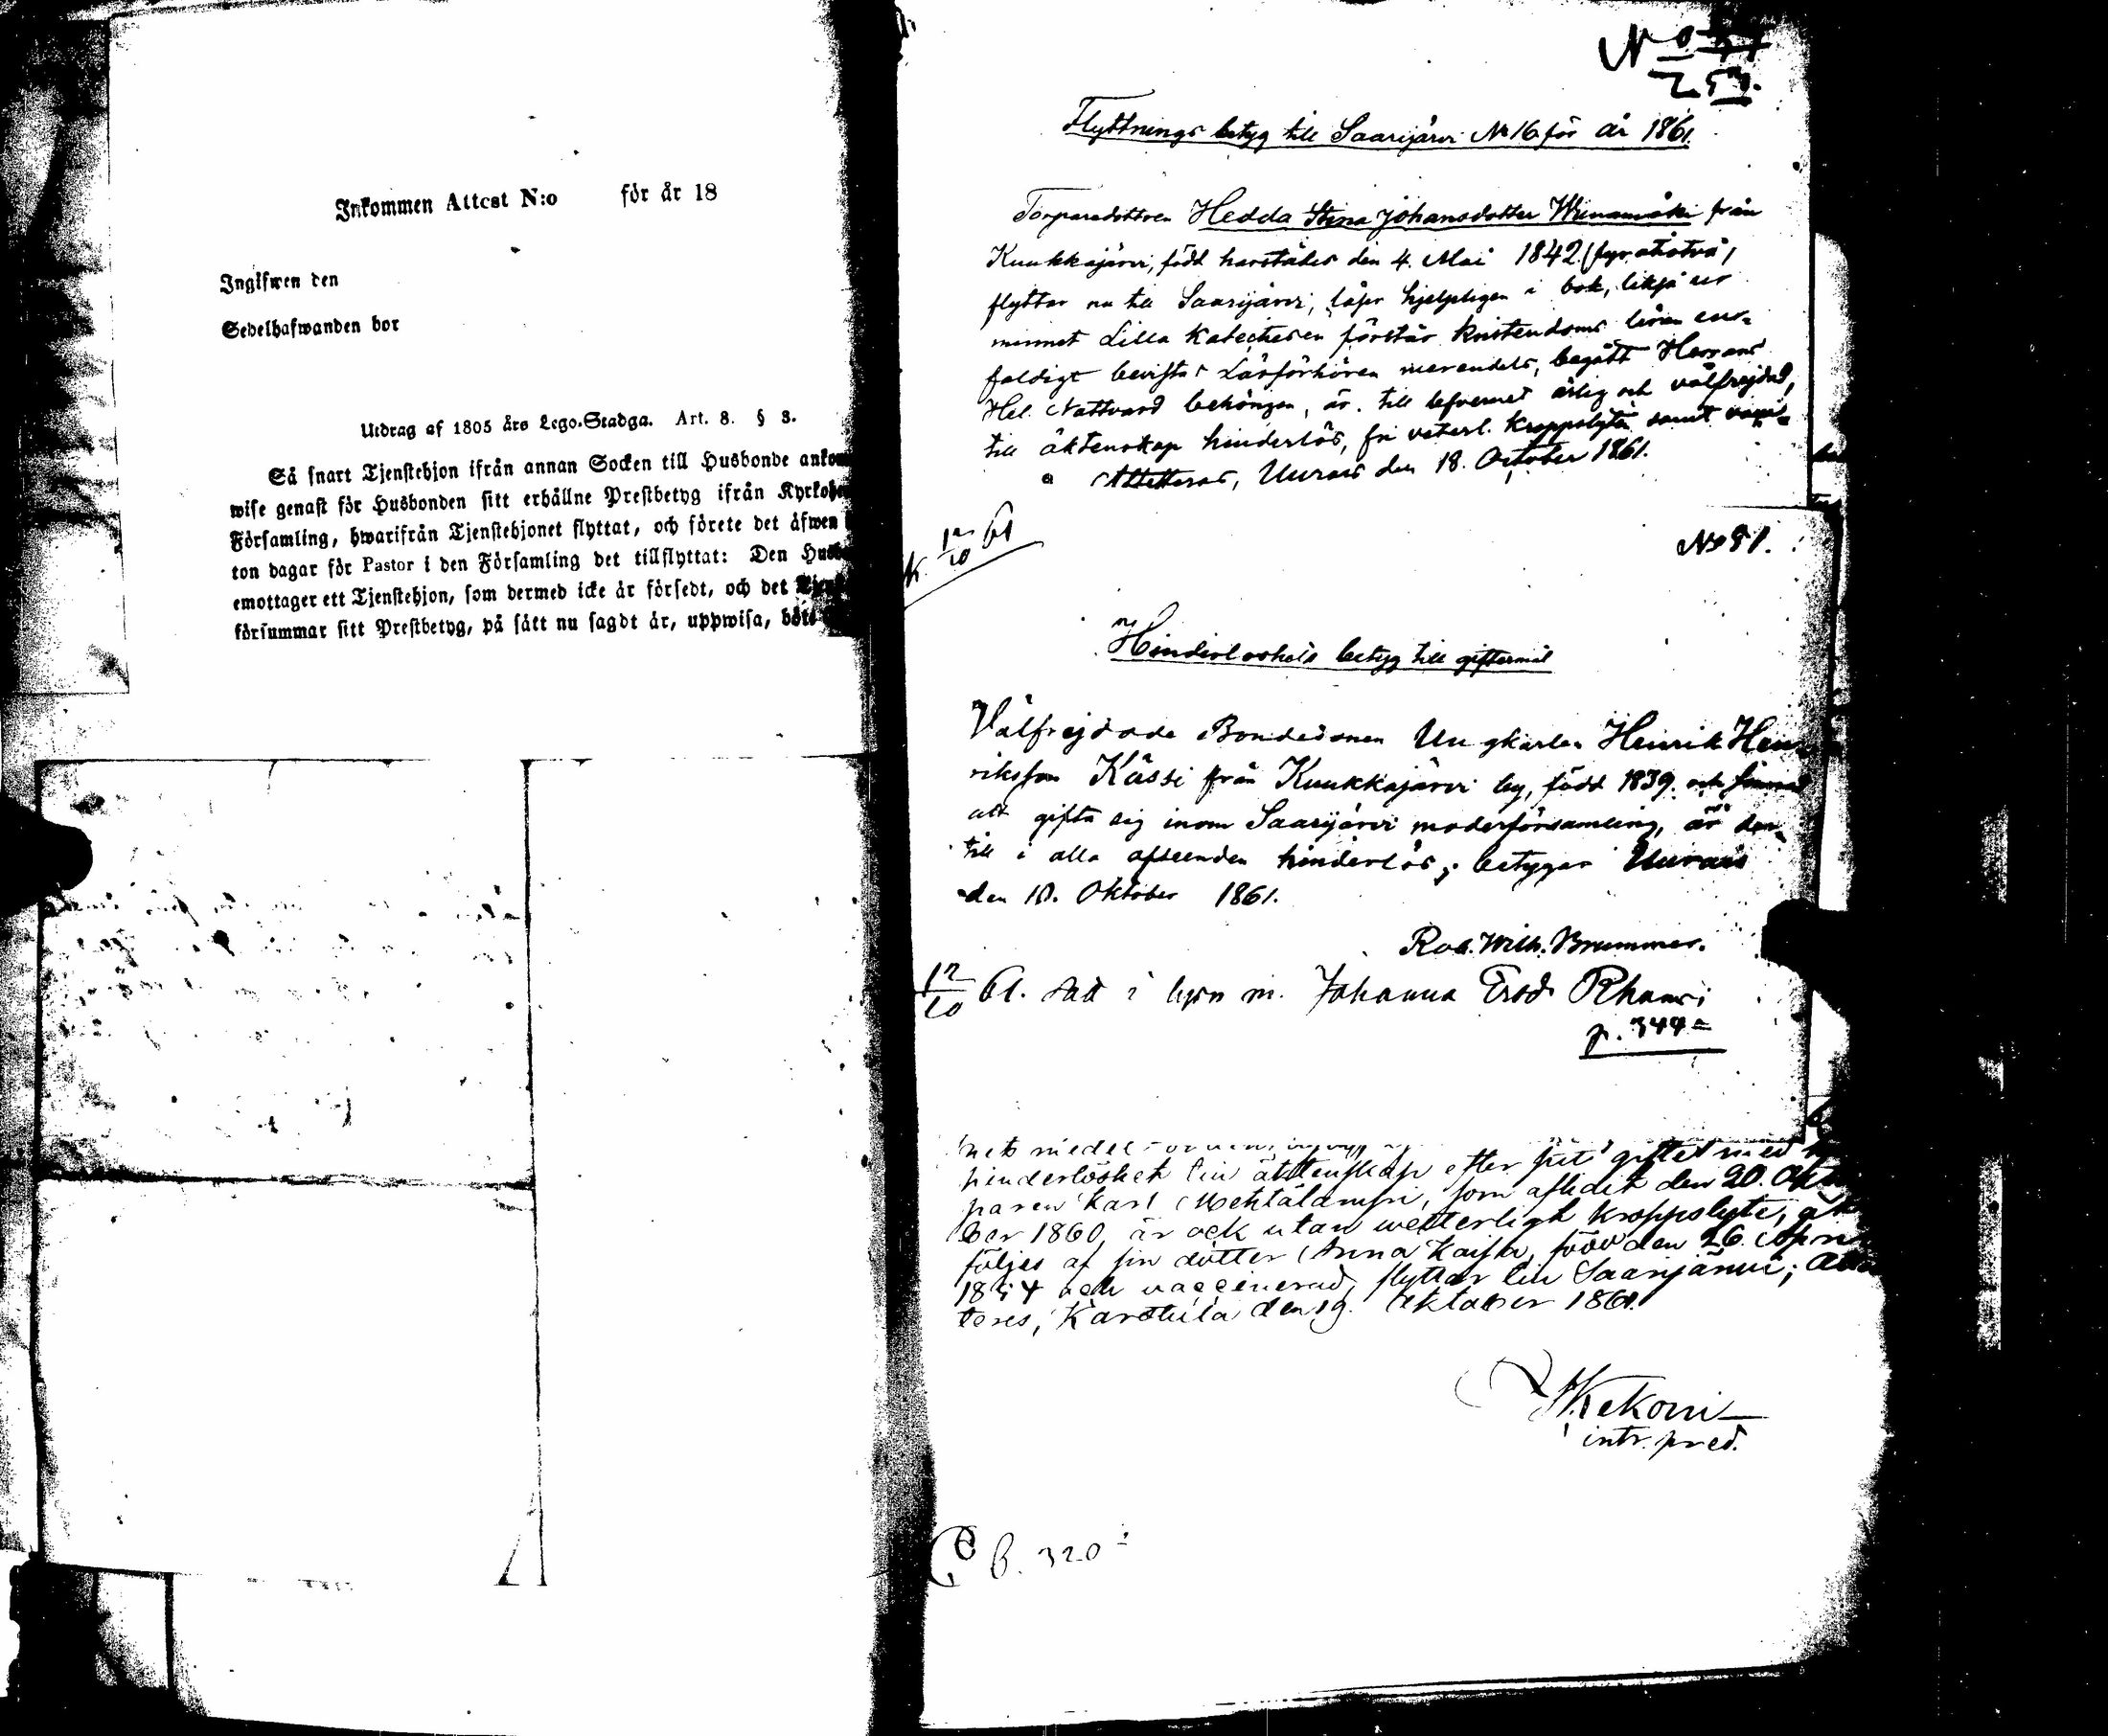 Inkommen Attest N:o för år 18
Ingifwen den
Sedelhafwanden bor
Utdrag af 1805 års Lego-Stadga. Art. 8. § 3.
Så snart Tjenstehjon ifrån annan Socken till Husbonde ankom
wise genast för Husbonden sitt erhållne Prestbetyg ifrån Kyrkohe
Församling, hwarifrån Tjenstehjonet flyttat, och förete det äfwen
ton dagar för Pastor i den Församling det tillflyttat: Den Husb
emottager ett Tjenstehjon, som dermed icke är försedt, och det Tjen
försummar sitt Prestbetyg, på sätt nu sagdt är, uppwisa, böte
No
253.
Flyttnings betyg till Saarijärvi No 16 för år 1861.
Torparedottren Hedda Stina Johansdotter från
Kuukkajärvi, född harstädes den 4. Mai 1842 (fyratiotvå)
flyttar nu till Saarijärvi, läser hjelpligen i bok, likså ur
minnet Lilla Katechesen förstår kristendoms läran en-
faldigt bevistat Läsförhören merendels, begått Herrans
Hel. Nattvard behörigen, är till lefvernet ärlig och välfrejdad,
till äktenskap hinderlös, fri veterl. kroppslyte samt
Attesteras, Uurais den 18. October 1861.
61
10
No 81.
Hinderlöshets betyg till giftermål
Välfrejdade Bondesonen Ungkarlen Henrik Hen
riksson Kässi från Kuukkajärvi by, född 1839. och
att gifta sig inom Saarijärvi moderförsamling, är der-
till i alla afseenden hinderlös; betygar Uurais
den 10. Oktober 1861.
Rob. Wilh. Brummer.
12/10 61. satt i lysn m. Johanna Ersd.
p. 344
hinderlöshet till äktenskap efter sitt gifte med
paren Karl som aflidit den 20. Okt
ber 1860, är ock utan wetterligt kroppslyte,
följes af sin dotter Anna Kaisa, född den 26. Apri
1854 och vaccinerad, flyttar till Saarijärvi; Att
teres, Karstula den 19. Oktober 1861.
Kekoni
intr. pred.
p. 320